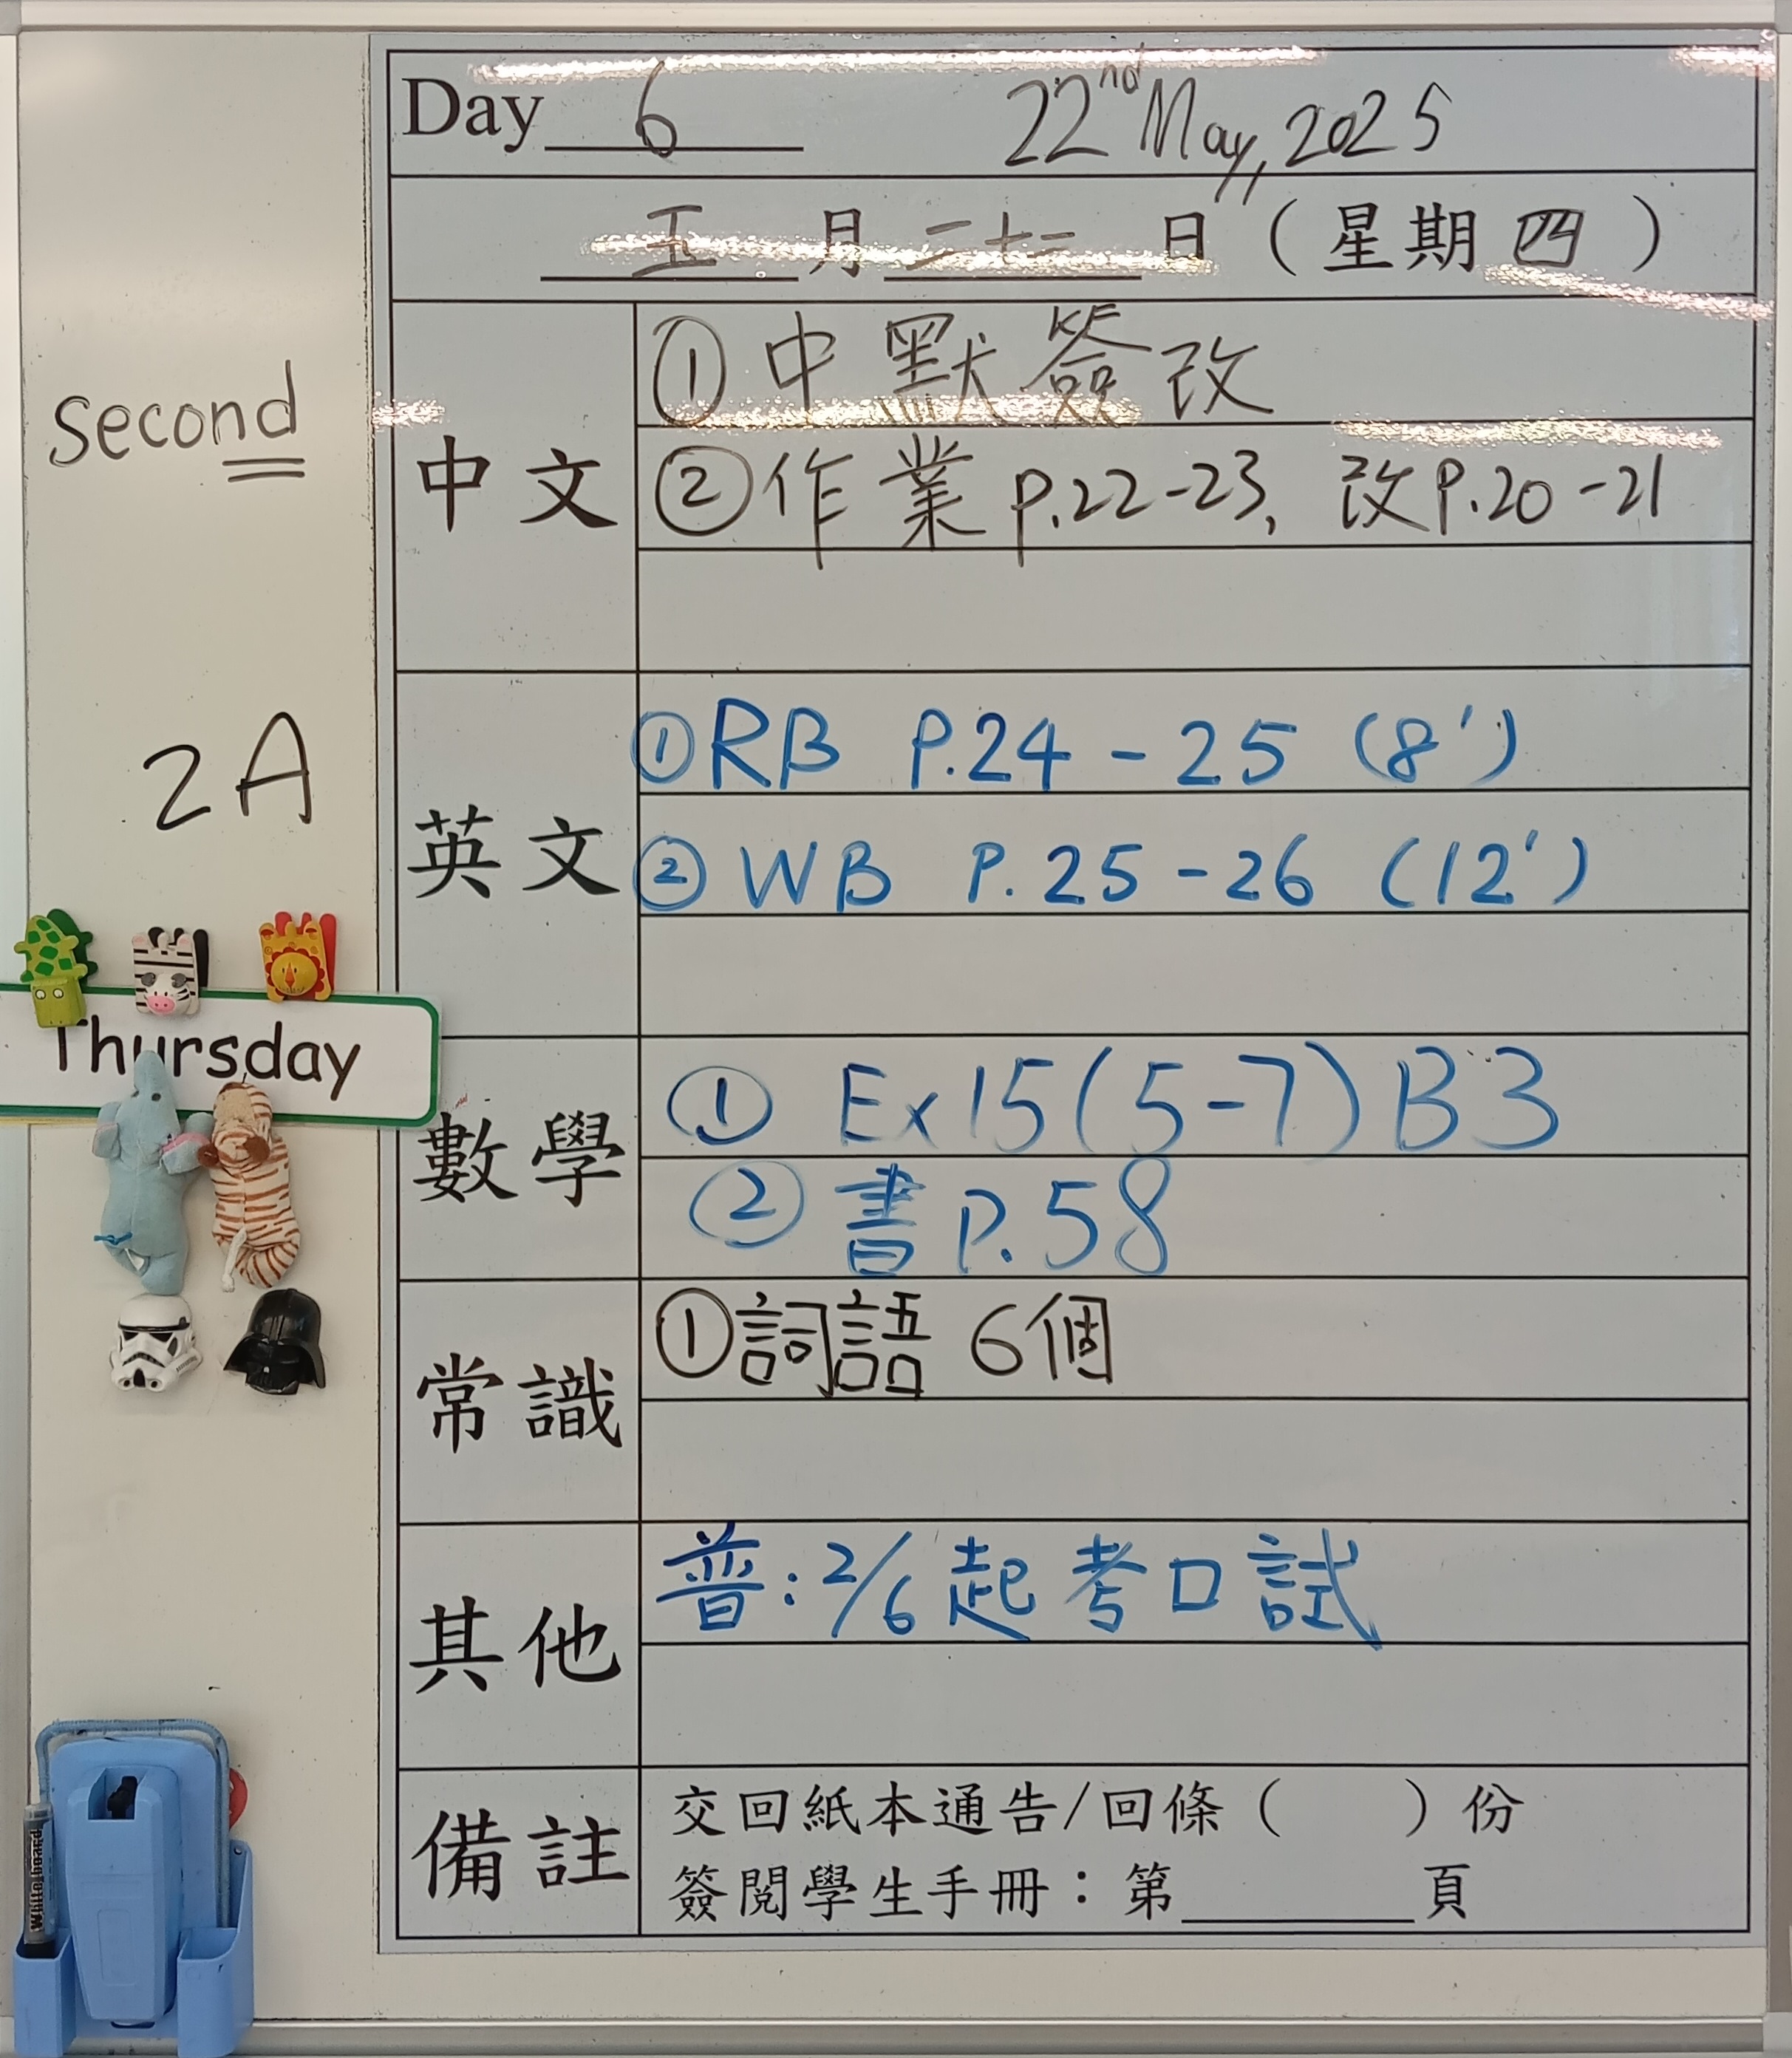 Day 6 22nd May, 2025
五 月 二十二 日 (星期四)
second
中文
① 中默簽改
② 作業 p.22-23, 改 P.20-21
2A
英文
① RB P.24-25 (8')
② WB P.25-26 (12')
Thursday
數學
① Ex15(5-7) B3
② 書 P.58
常識
① 詞語 6個
其他
普: 2/6 起考口試
備註
交回紙本通告/回條 ( ) 份
簽閱學生手冊：第______頁
Whiteboard